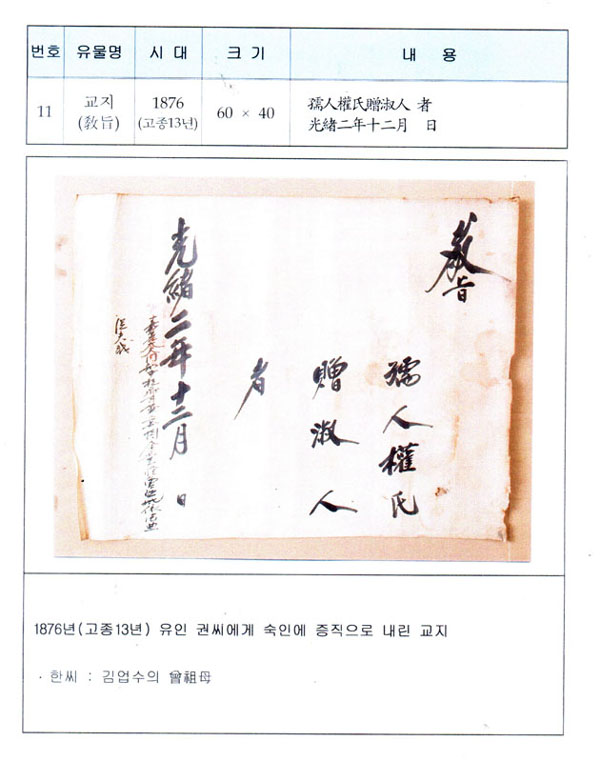 번호 유물명 시 대 크 기 내 용
11 교지 (敎旨) 1876 (고종13년) 60 × 40 孺人權氏贈淑人 者
光緖二年十二月 日
敎旨
孺人權氏
贈淑人
者
光緖二年十二月 日
1876년(고종13년) 유인 권씨에게 숙인에 증직으로 내린 교지
· 한씨 : 김업수의 曾祖母